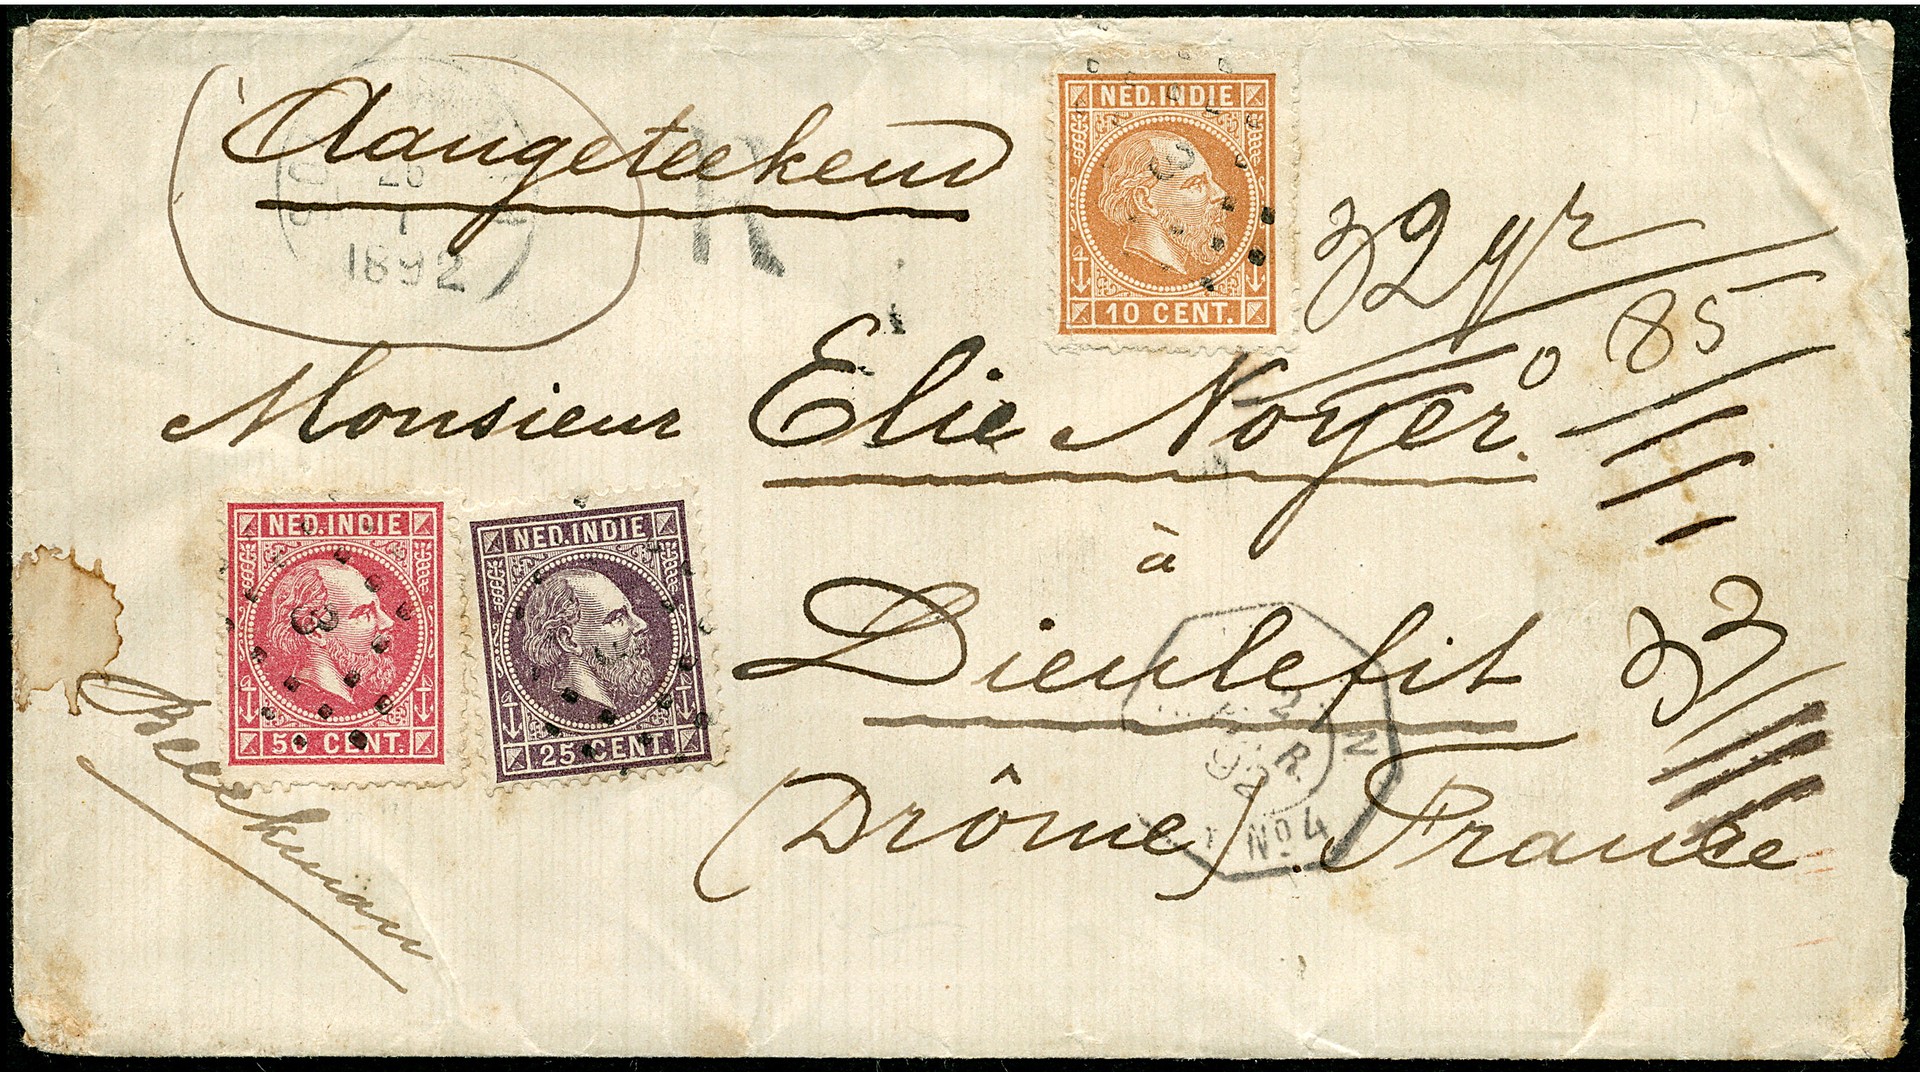 Aangeteekend
26
1
1892
R
NED. INDIE
10 CENT.
32 gr
0 85
Monsieur Elie Noyer.
à
Dieulefit
33
(Drôme). France
NED. INDIE
8
50 CENT.
NED. INDIE
25 CENT.
2
92
No 4